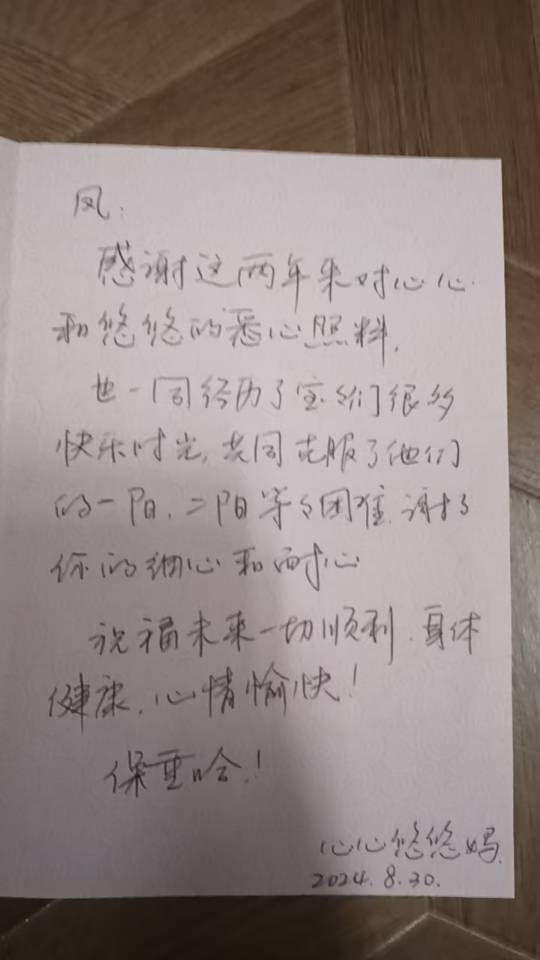 凤：
感谢这两年来对心心
和悠悠的悉心照料.
也一同经历了宝々们很多
快乐时光,共同克服了他们
的一阳.二阳等々困难.谢谢
你的细心和耐心
祝福未来一切顺利.身体
健康.心情愉快!
保重哈!
心心悠悠妈.
2024.8.30.